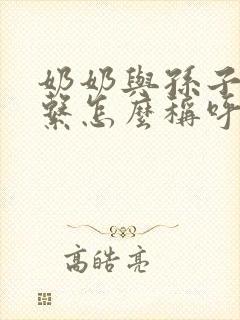 奶奶與孫子
繫怎麼稱呼
高皓亮